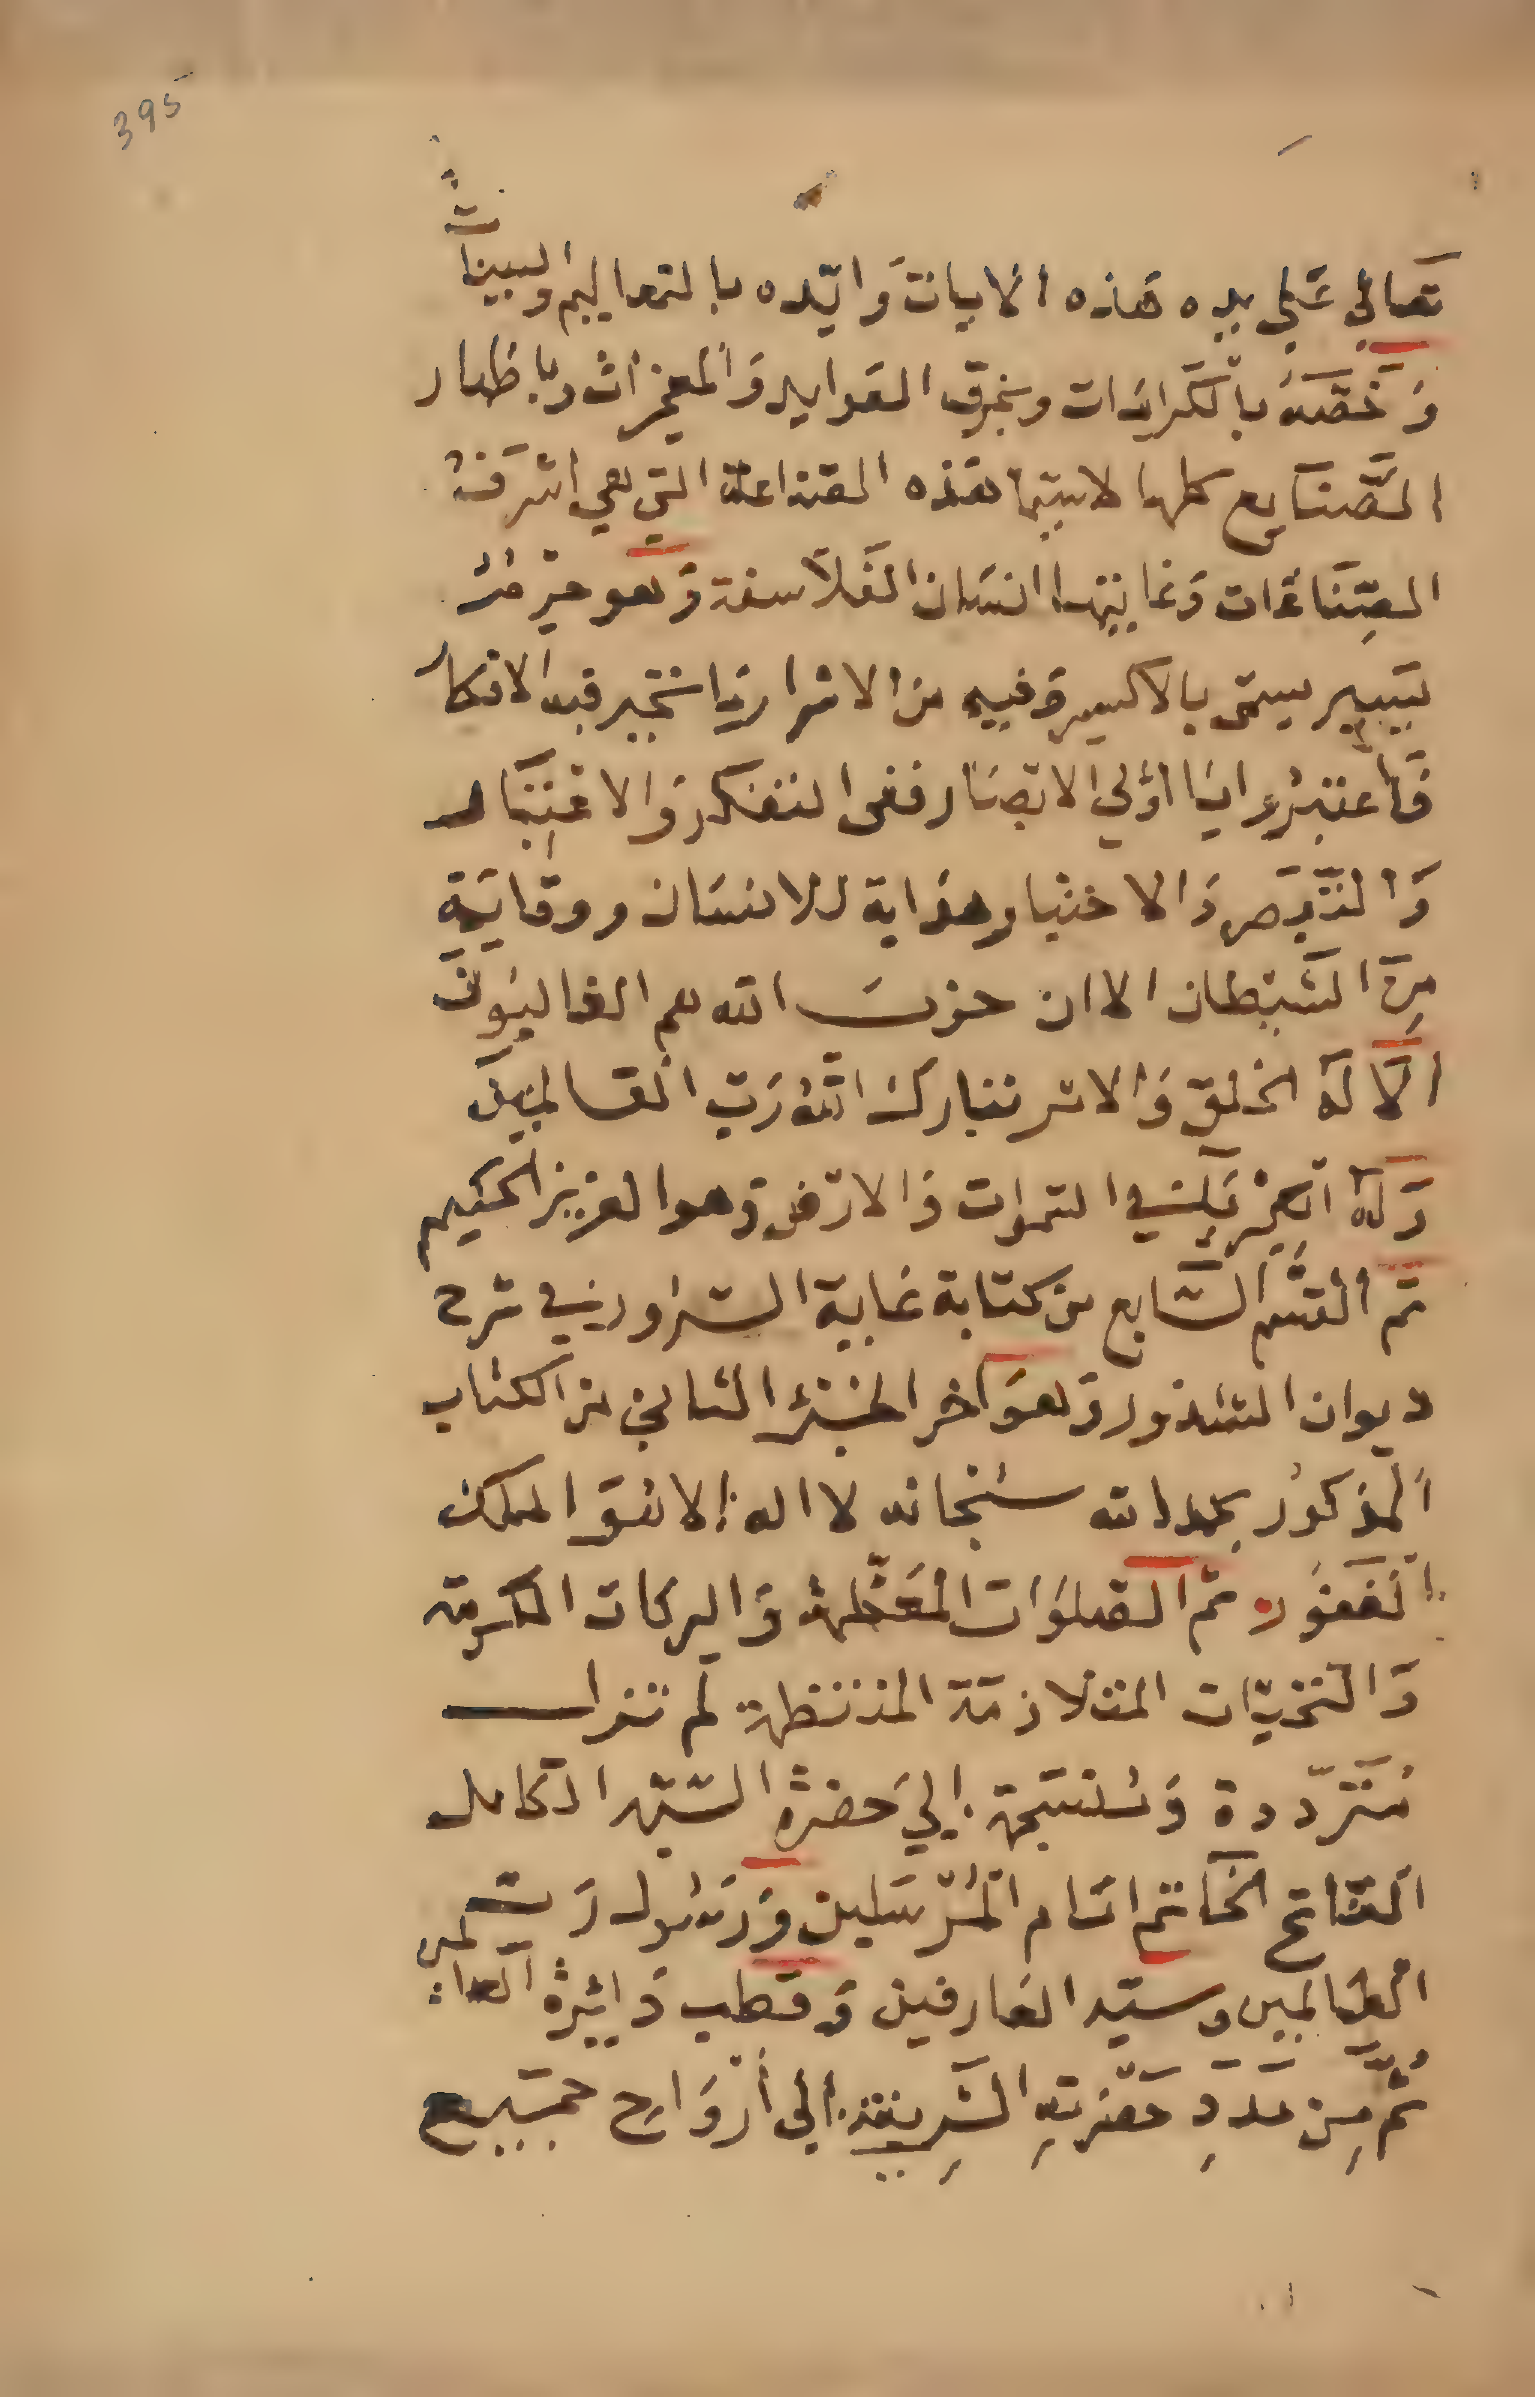 395
تعالي علي يده هذه الايات وايّده بالتعاليم والبينات
وَخصّه بالكرامات وبخرق العوايد وَالمعجزات وباظهار
الصّنَايع كلها لاسيّما هذه الصناعة التي هي اشرف
الصِّنَاعَات وَغايتها انسَان الفَلاسفة وَهو جزء
يَسِير يسمّى بالاكسير وَفيه من الاسرار مَا تتحير فيه الافكار
فَاعتبرُوا يَا اوُلي الابصَار ففى التفكر وَالاعتبَار
وَالتّبصر وَالاختبار هدَاية للانسَان ووقايَة
مِنَ الشيطان الا ان حزبَ الله هم الغالبُونَ
الَا لَهُ الخلق وَالامر تبارك اللهُ رَبّ العالمينَ
وَلَهُ الكبريَآء في السموات وَالارض وَهو العزيز الحكيم
تم القسم السَّابع من كتابة غاية السرور في شرح
ديوان الشذور وَهوَ آخر الجزء الثاني من الكتاب
المذكوُر بحمد الله سبحانه لا اله الا هوَ الملك
الغفور ثم الصلوَات المعَظمة وَالبركات المكرمة
وَالتحيّات المتلازمَة المنتظمة لم تزل
مُتَردّدة وَمنسَجمة الي حَضرة السّيّد الكامل
الفاتح الخَاتم امَام المُرْسَلين وَرَسُول رَبّ
العَالمين وسيّد العَارفين وَقطب دَايرة
ثمَّ مِن مَدَدِ حَضرَتهِ الشَرِيفة الى أروَاح جميع